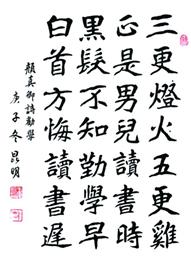 三更燈火五更雞
正是男兒讀書時
黑髮不知勤學早
白首方悔讀書遲
顏真卿詩勸學
庚子冬昆明